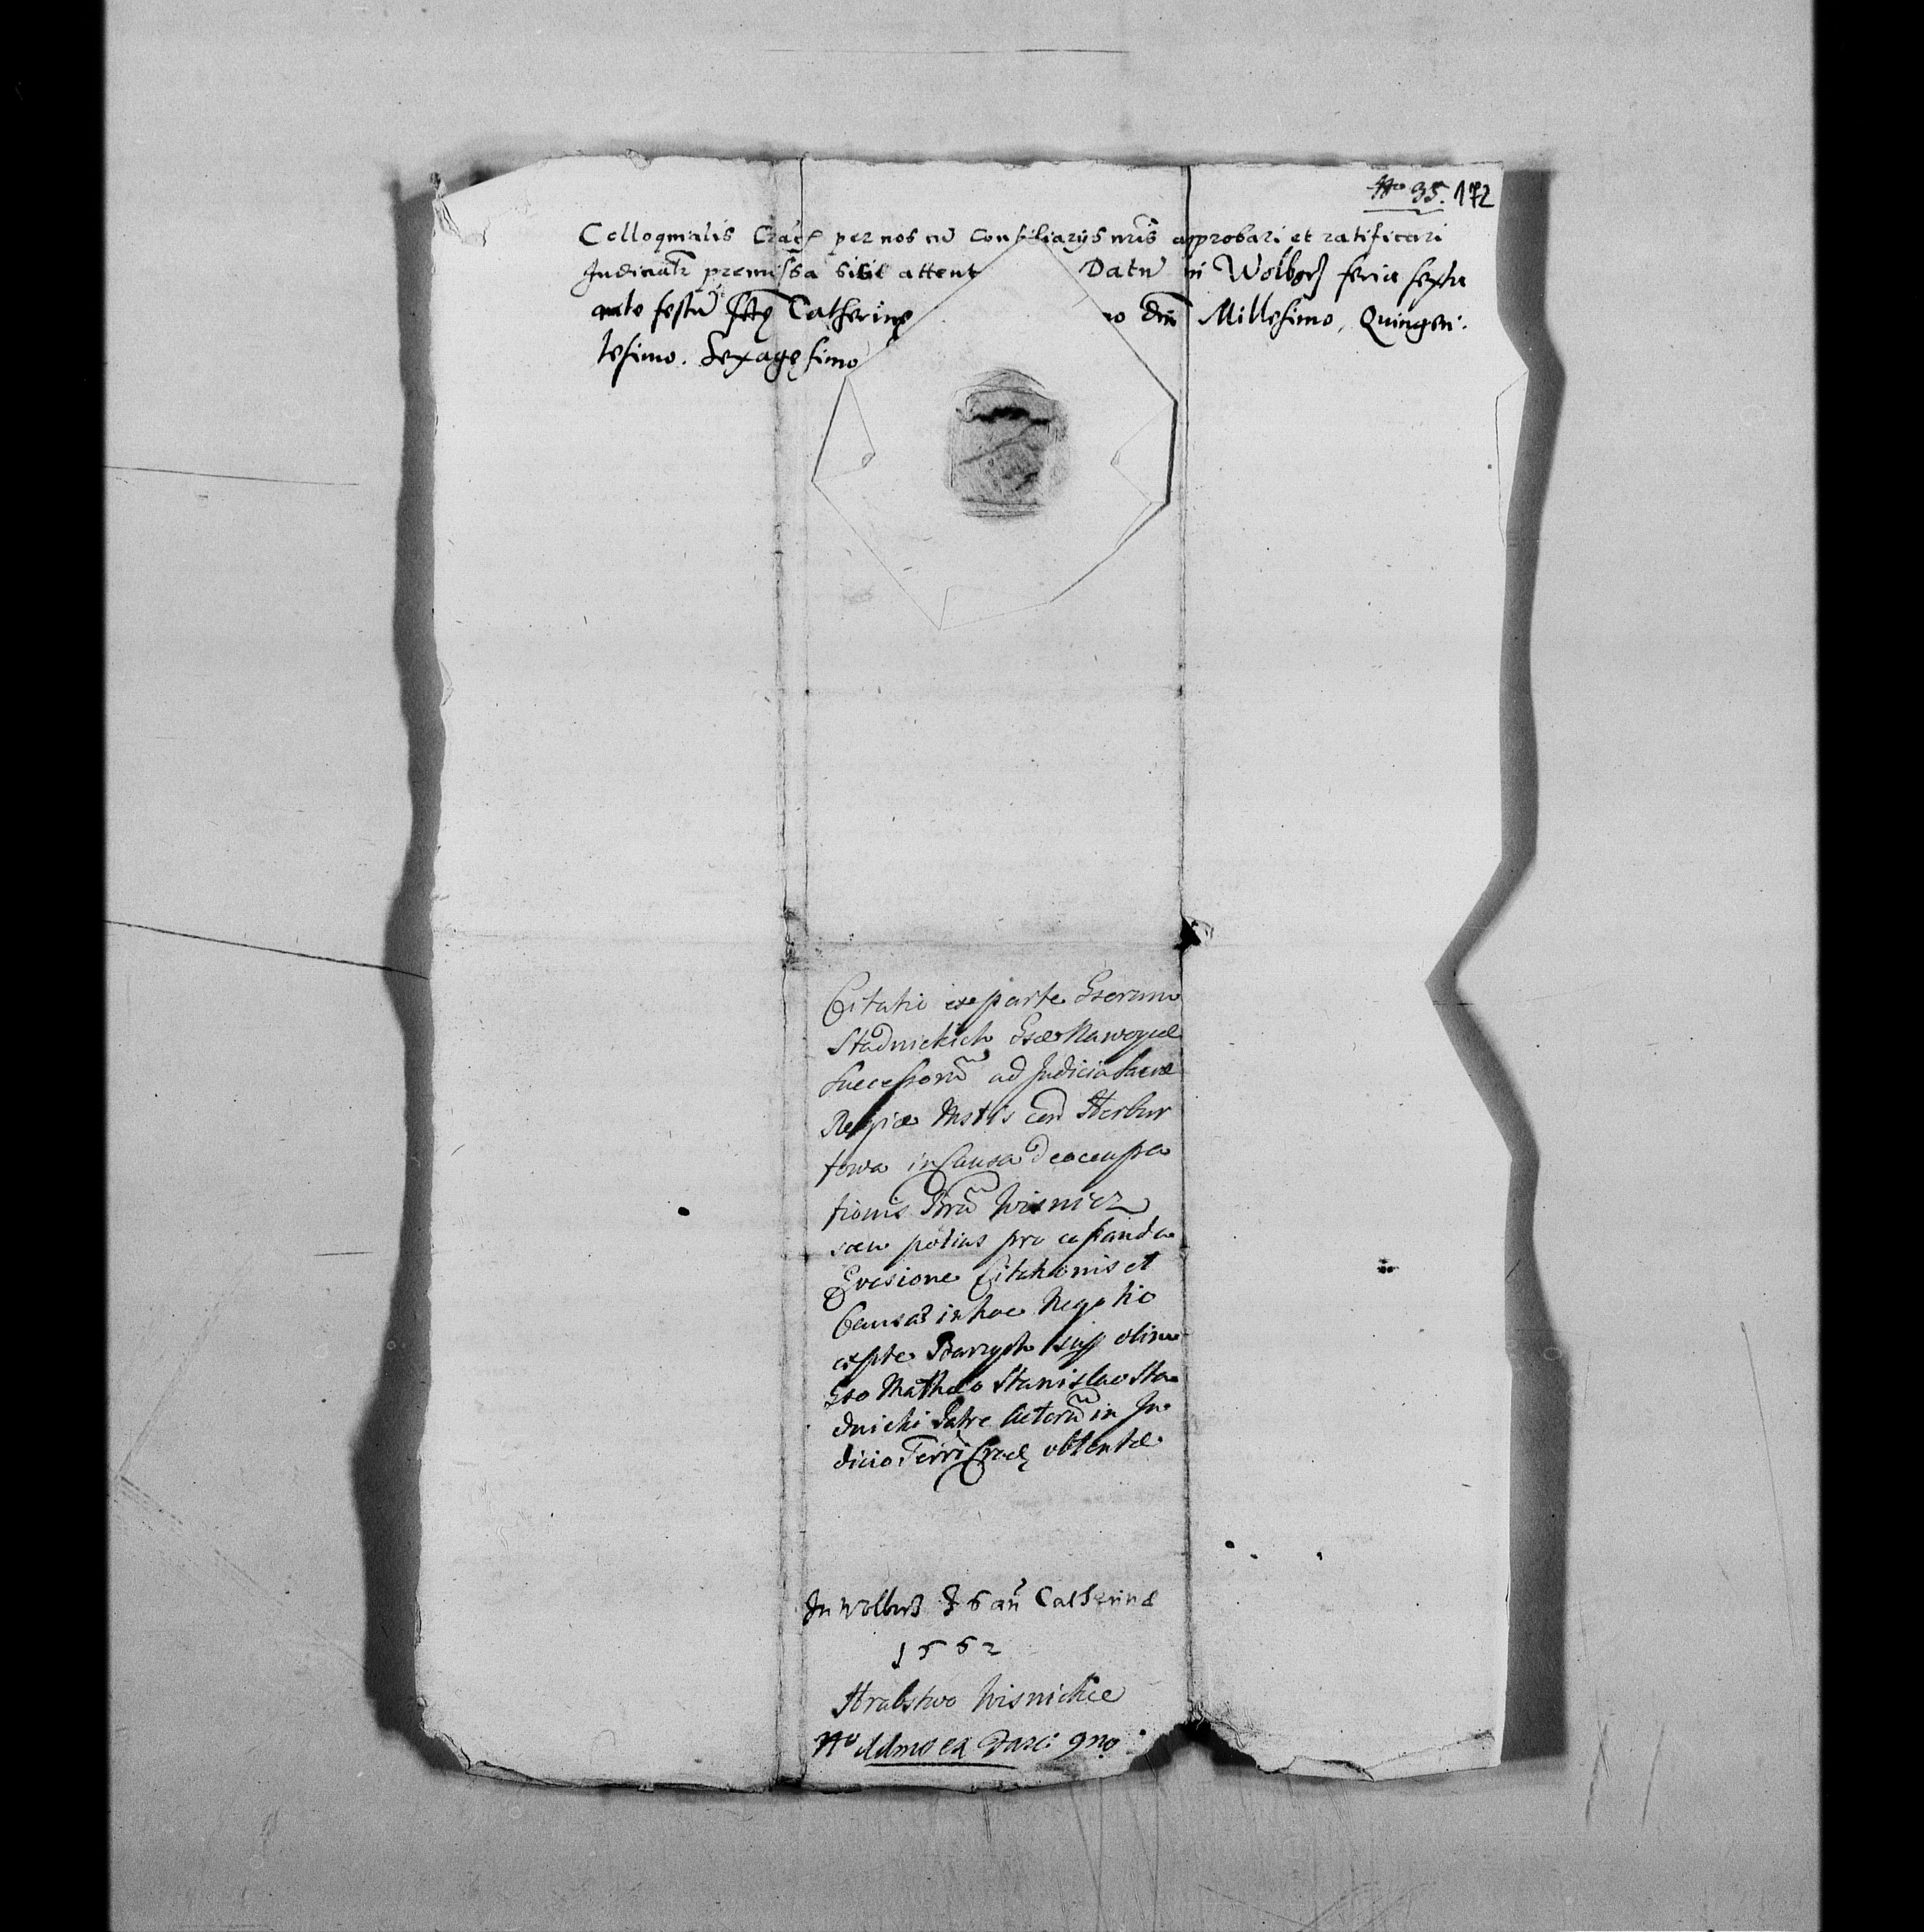 No 35. 172
Colloquialis Crac per nos cū Consiliarys nr̄is approbari et ratificari
Judicialr premissa sibil attent Datū in Wolborz feria sexta
ante festū Sctę Catherinę no Dn̄i Millesimo, Quingen.
tesimo. Sexagęsimo
Citatio ex parte Gsorum
Stadnickich Gsæ Nawoyæ
Successorū ad Judicia Sacræ
Regiæ Mstis con Herbur
towa in Causa de occupa
tionis Bnrū Wisnicz
seu potius pro
Evasione Citationis et
Causæ in hoc Negotio
olim
Gso Mathæo Stanislao Sta
dnicki Patre Actorū in Ju
dicio Terri Crac obtentæ
In Wolborz F 6 an Catherinæ
1562
Hrabstwo Wisnickie
No